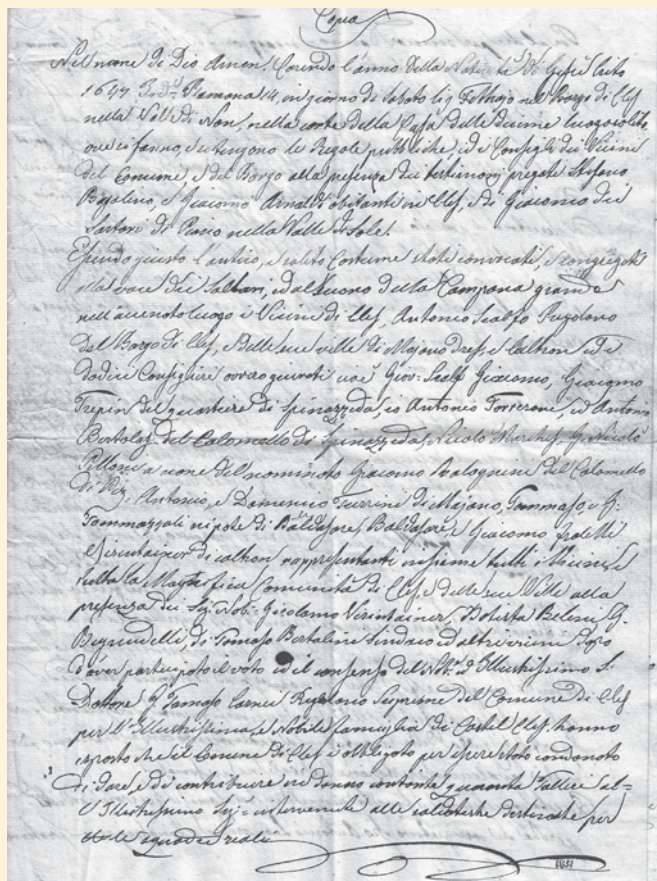 Copia
Nel nome di Dio Amen. Corendo l'anno della Natività di Gesù Crito
1647 Ind. Romana 14, in giorno di Sabato li Febrajo nel Borgo di Cles
nella Valle di Non, nella corte della Casa delle Decime luogo solito,
ove si fanno, e si tengono le Regole pubbliche ed i Consigli dei Vicini
del Comune, e del Borgo alla presenza dei testimonj pregati Stefano
Bajolino, e Giacomo Arnaldi abitanti in Cles, e di Giacomo dei
Sartori di nella Valle di Sole.
Essendo giusto l'antico, e solito Costume stati convocati, e congregati
alla voce dei Saltari, ed al suono della Campana grande
nell'accenato luogo i Vicini di Cles, Antonio Scalfo Regolano
del Borgo di Cles, e delle sue ville di Majano dres, e Calthron ed i
dodici Consiglieri ovvero giurati cioè Giov. Scalf Giacomo, Giacomo
Trepin del quartiere di Spinazzeda, ed Antonio
Bertolas del Colomello di Spinazzeda, Nicolò G. Nicolò
Pilloni a nome del nominato Giacomo Bolognini del Colomello
di Pez, Antonio, e Domenico Turrini di Majano, Tommaso, e G.
Tommazzoli nipote di Baldasare, Baldasare, e Giacomo fratelli
di Calthron rappresentanti insieme tutti i Vicini, e
tutta la Magnifica Comunità di Cles, e delle sue Ville alla
presenza dei Sig. Nob. Girolamo Visintainer, Batista Belini G.
di Tomaso Bertolini Sindaco ed altri vicini dopo
d'aver participato il voto ed il consenso del Nob. ed Illustrissimo S.
Dottore G. Tomaso Regolano Supremo del Comune di Cles
per l'Illustrissima, e Nobile famiglia di Castel Cles, hanno
esposto che il Comune di Cles è obbligato per essere stato condanato
di dare, e di contribuire in denaro contante quaranta Talleri al=
l'Illustrissimo Sig. intervenute alle soldatesche destinate per
le squadre reali